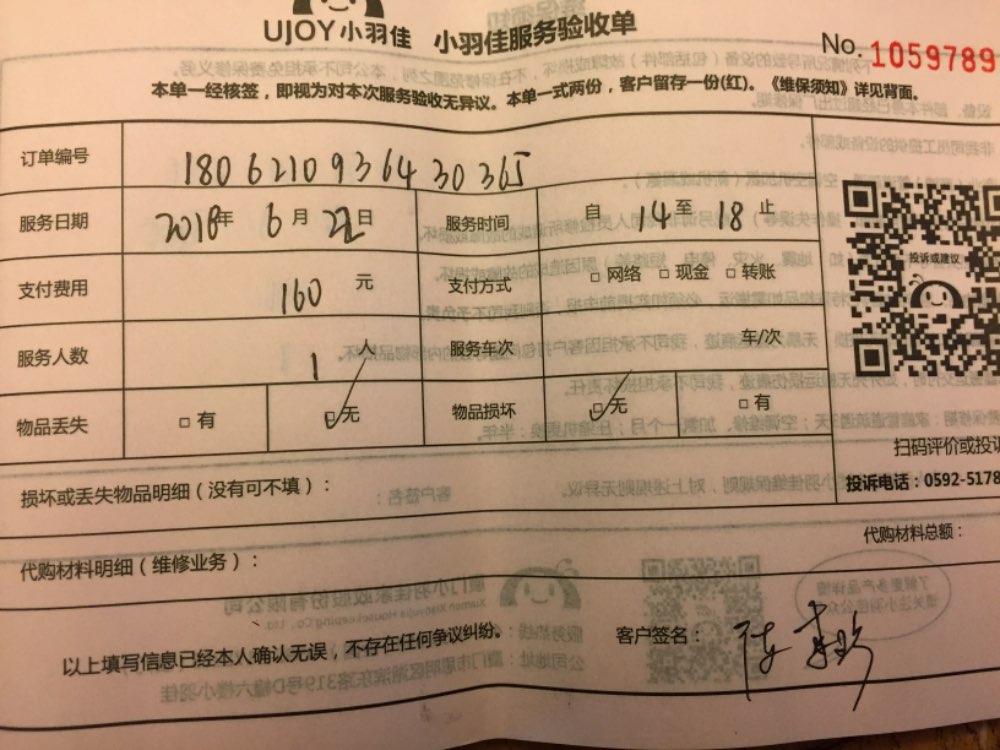 UJOY小羽佳 小羽佳服务验收单
No. 1059789
本单一经核签，即视为对本次服务验收无异议。本单一式两份，客户留存一份(红)。《维保须知》详见背面。
订单编号 18062109364 30365
服务日期 2018年 6月 22日 服务时间 自 14 至 18 止
支付费用 160 元 支付方式 □网络 □现金 □转账
服务人数 1 人 服务车次 车/次
物品丢失 □有 □无 物品损坏 □无 □有
投诉或建议
扫码评价或投诉
投诉电话：0592-5178
损坏或丢失物品明细（没有可不填）：
代购材料明细（维修业务）： 代购材料总额：
以上填写信息已经本人确认无误，不存在任何争议纠纷。 客户签名：